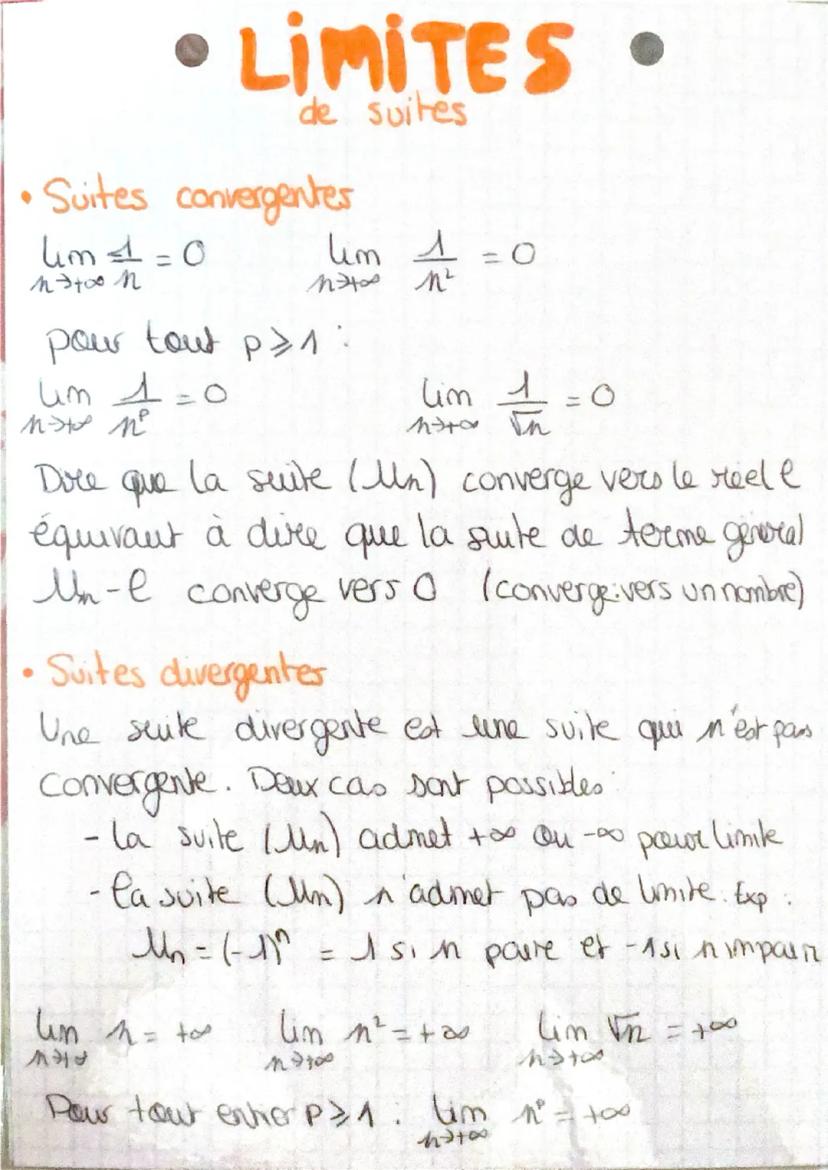 LIMITES
de suites
• Suites convergentes
lim n→+∞ 1/n = 0 lim n→+∞ 1/n² = 0
pour tout p ⩾ 1 :
lim n→+∞ 1/nᵖ = 0 lim n→+∞ 1/√n = 0
Dire que la suite (Un) converge vers le réel ℓ
équivaut à dire que la suite de terme général
Un - ℓ converge vers 0 (converge: vers un nombre)
• Suites divergentes
Une suite divergente est une suite qui n'est pas
convergente. Deux cas sont possibles:
- la suite (Un) admet +∞ ou -∞ pour limite
- la suite (Un) n'admet pas de limite. Exp :
Un = (-1)ⁿ = 1 si n paire et -1 si n impair
lim n→+∞ n = +∞ lim n→+∞ n² = +∞ lim n→+∞ √n = +∞
Pour tout entier p ⩾ 1 : lim n→+∞ nᵖ = +∞